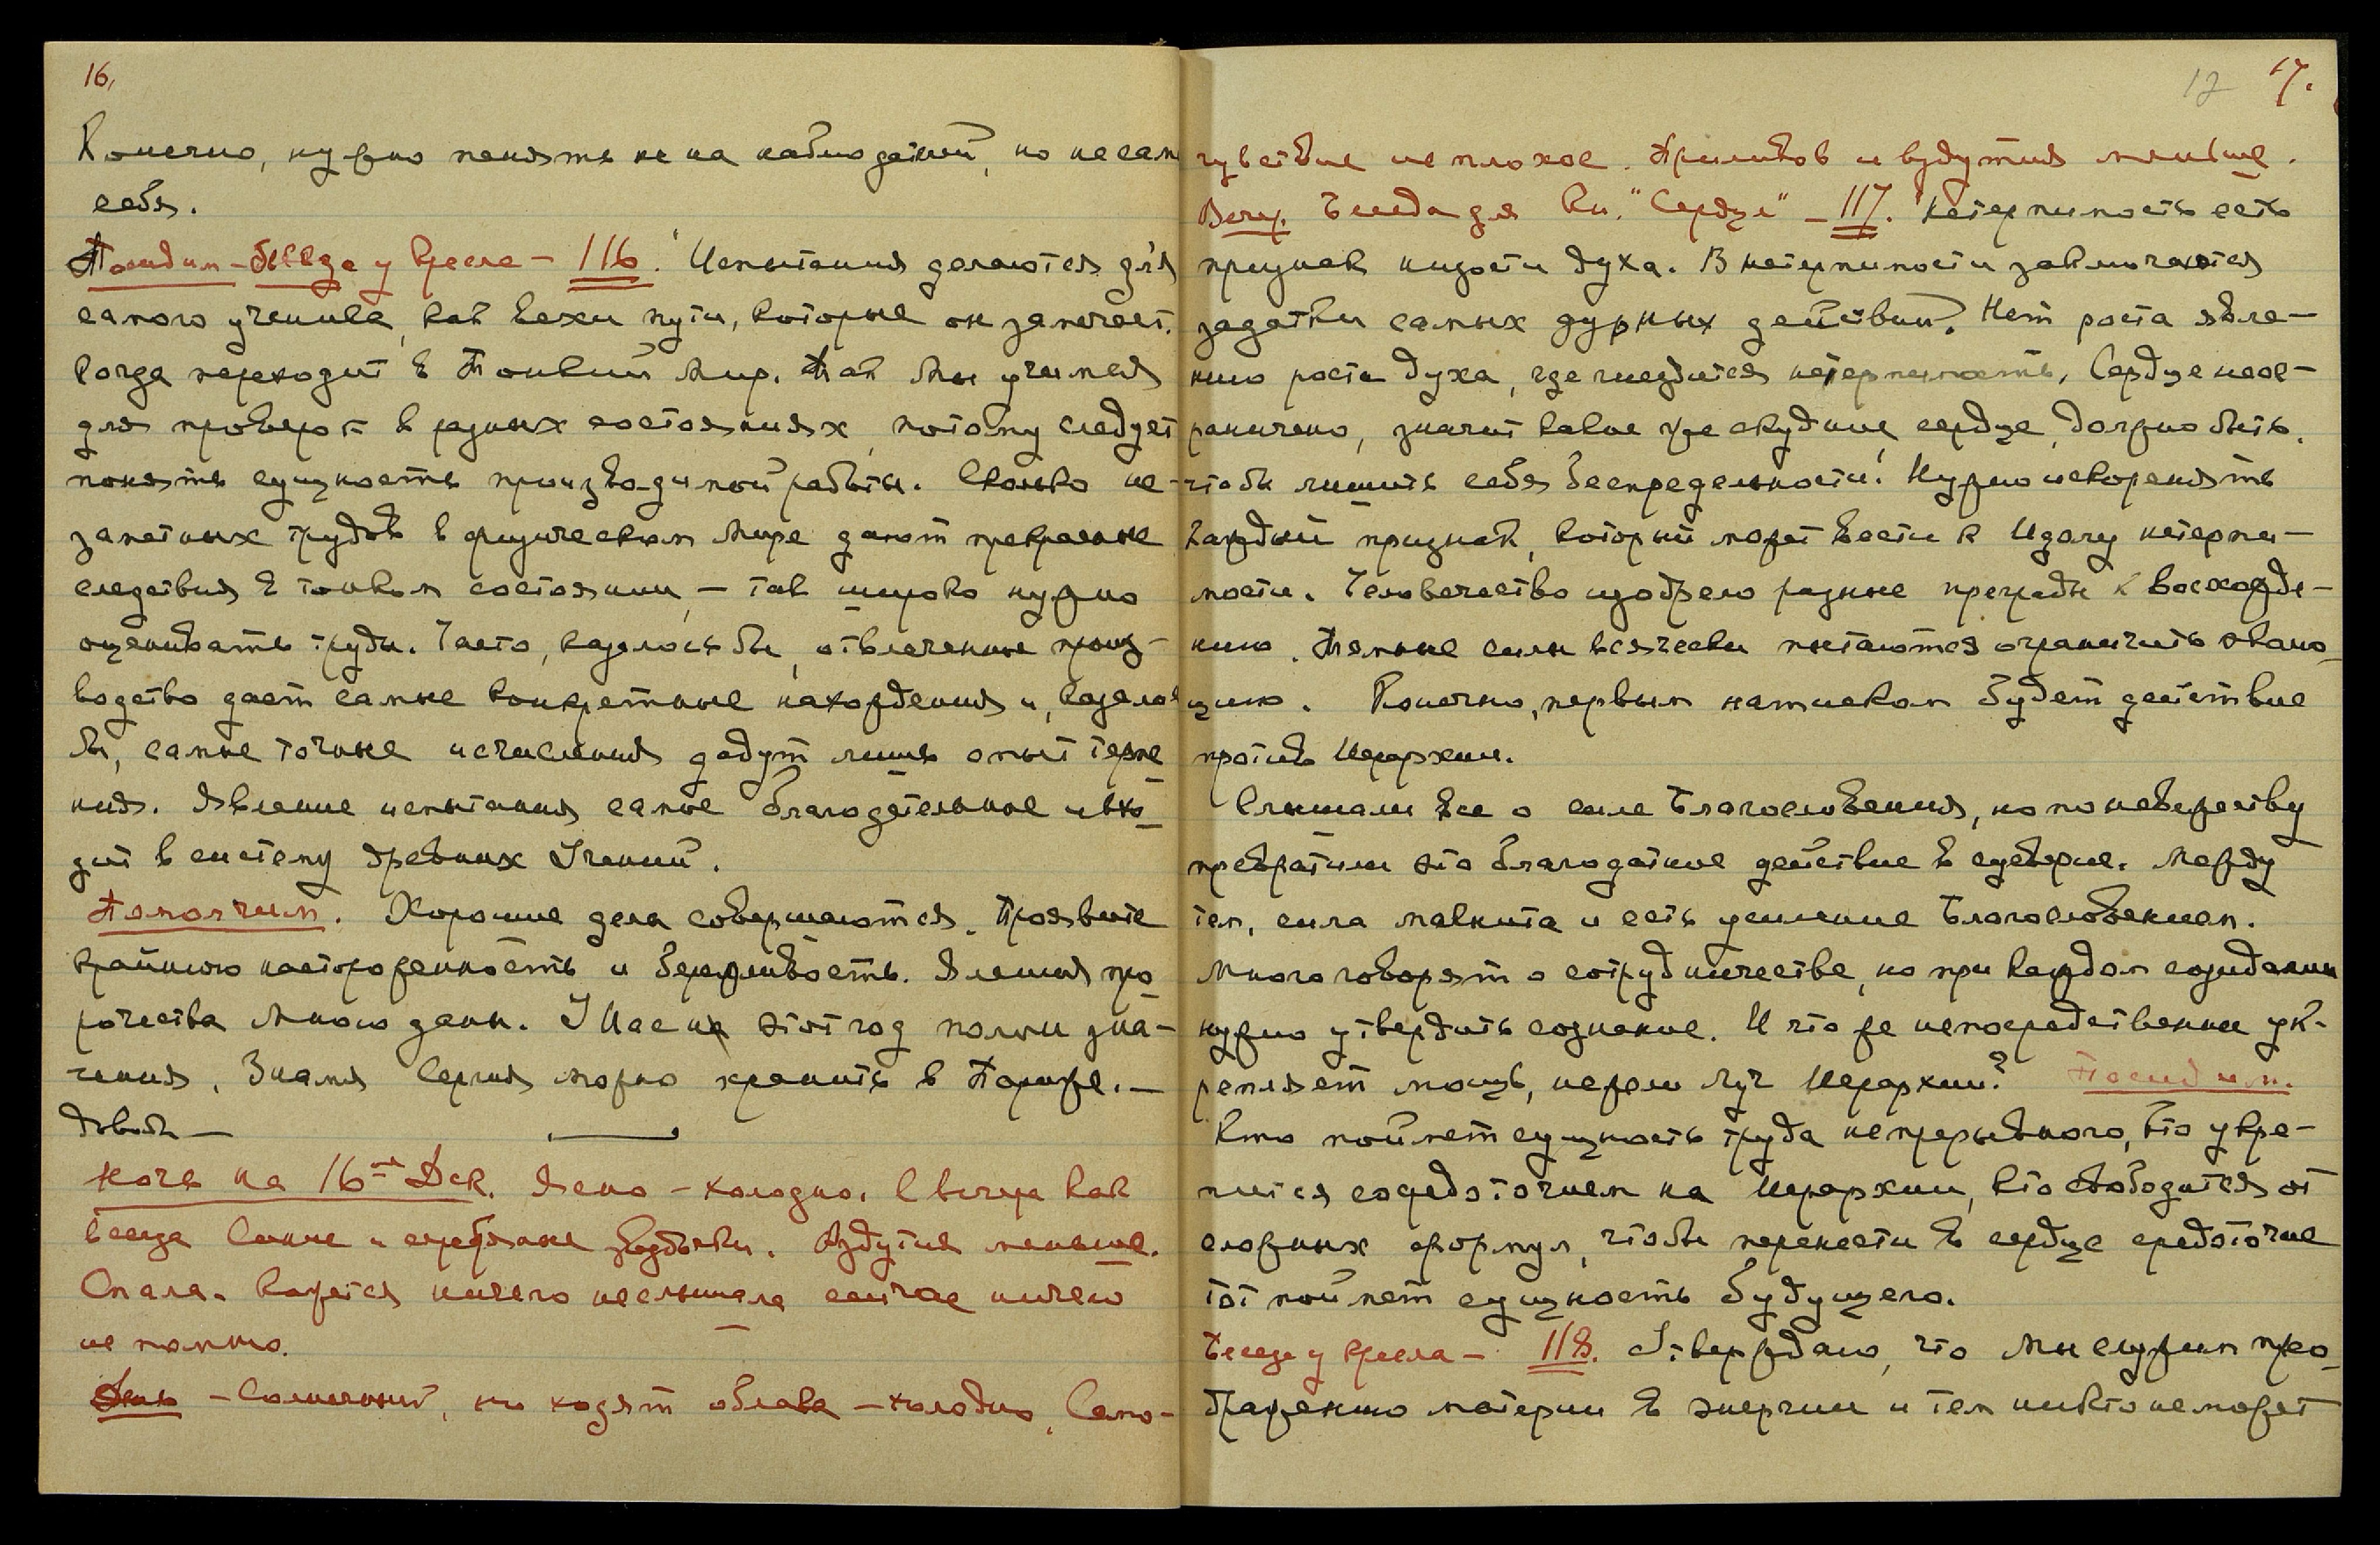 16.
Конечно, нужно пенять не на наблюдателей, но на сам
себя.
Посидим – беседа у кресла – 116. "Испытания делаются для
самого ученика, как вехи пути, которые он замечает,
когда переходит в Тонкий Мир. Так Мы учимся
для проверок в разных состояниях, потому следует
понять сущность производимой работы. Сколько не-
заметных трудов в физическом мире дают прекрасные
следствия в тонком состоянии, – так широко нужно
оценивать труды. Часто, казалось бы, отвлеченные произ-
водство дает самые конкретные нахождения и, казалось
бы, самые точные исчисления дадут лишь опыт терпе-
ния. Явление испытания самое благодетельное и вхо-
дит в систему древних Учений.
Помолчим. Хорошие дела совершаются. Проявите
крайнюю настороженность и бережливость. Явления про-
рочества Мною даны. У Нас на этот год полны зна-
чения. Знамя Сергия можно хранить в Париже. –
Довольно –
Ночь на 16-ое Дек. Ясно – холодно. С вечера как
всегда синие и серебряные звездочки. Вздутия меньше.
Спала. Кажется ничего не слышала сейчас ничего
не помню.
День – Солнечный, но ходят облака – холодно. Само-
12 17.
чувствие не плохое. Приливов и вздутия меньше.
Вечер. Беседа для Кн. "Сердце" – 117. "Нетерпимость есть
признак низости духа. В нетерпимости заключаются
задатки самых дурных действий. Нет роста явле-
нию роста духа, где гнездится нетерпимость. Сердце неог-
раничено, значит какое же скудное сердце должно быть,
чтобы лишить себя беспредельности! Нужно искоренять
каждый признак, который может вести к Идолу нетерпи-
мости. Человечество изобрело разные преграды к восхожде-
нию. Темные силы всячески пытаются ограничить эволю-
цию. Конечно, первым натиском будет действие
против Иерархии.
Слышали все о силе Благословения, но по невежеству
превратили это благодатное действие в суеверие. Между
тем, сила магнита и есть усиление Благословением.
Много говорят о сотрудничестве, но при каждом созидании
нужно утвердить сознание. И что же непосредственнее ук-
репляет мощь, нежели Луч Иерархии? Посидим.
Кто поймет сущность труда непрерывного, кто укре-
пится сосредоточием на Иерархии, кто освободится от
сложных формул, чтобы перенести в сердце средоточие
тот поймет сущность будущего.
Беседа у кресла – 118. Утверждаю, что Мы служим прео-
бражению материи в энергии и тем никто не может